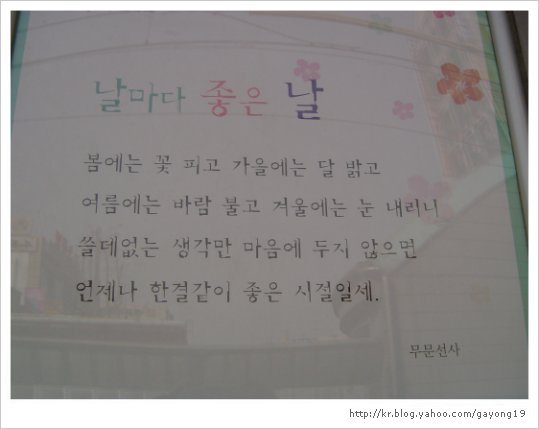 날마다 좋은 날
봄에는 꽃 피고 가을에는 달 밝고
여름에는 바람 불고 겨울에는 눈 내리니
쓸데없는 생각만 마음에 두지 않으면
언제나 한결같이 좋은 시절일세.
무문선사
http://kr.blog.yahoo.com/gayong19